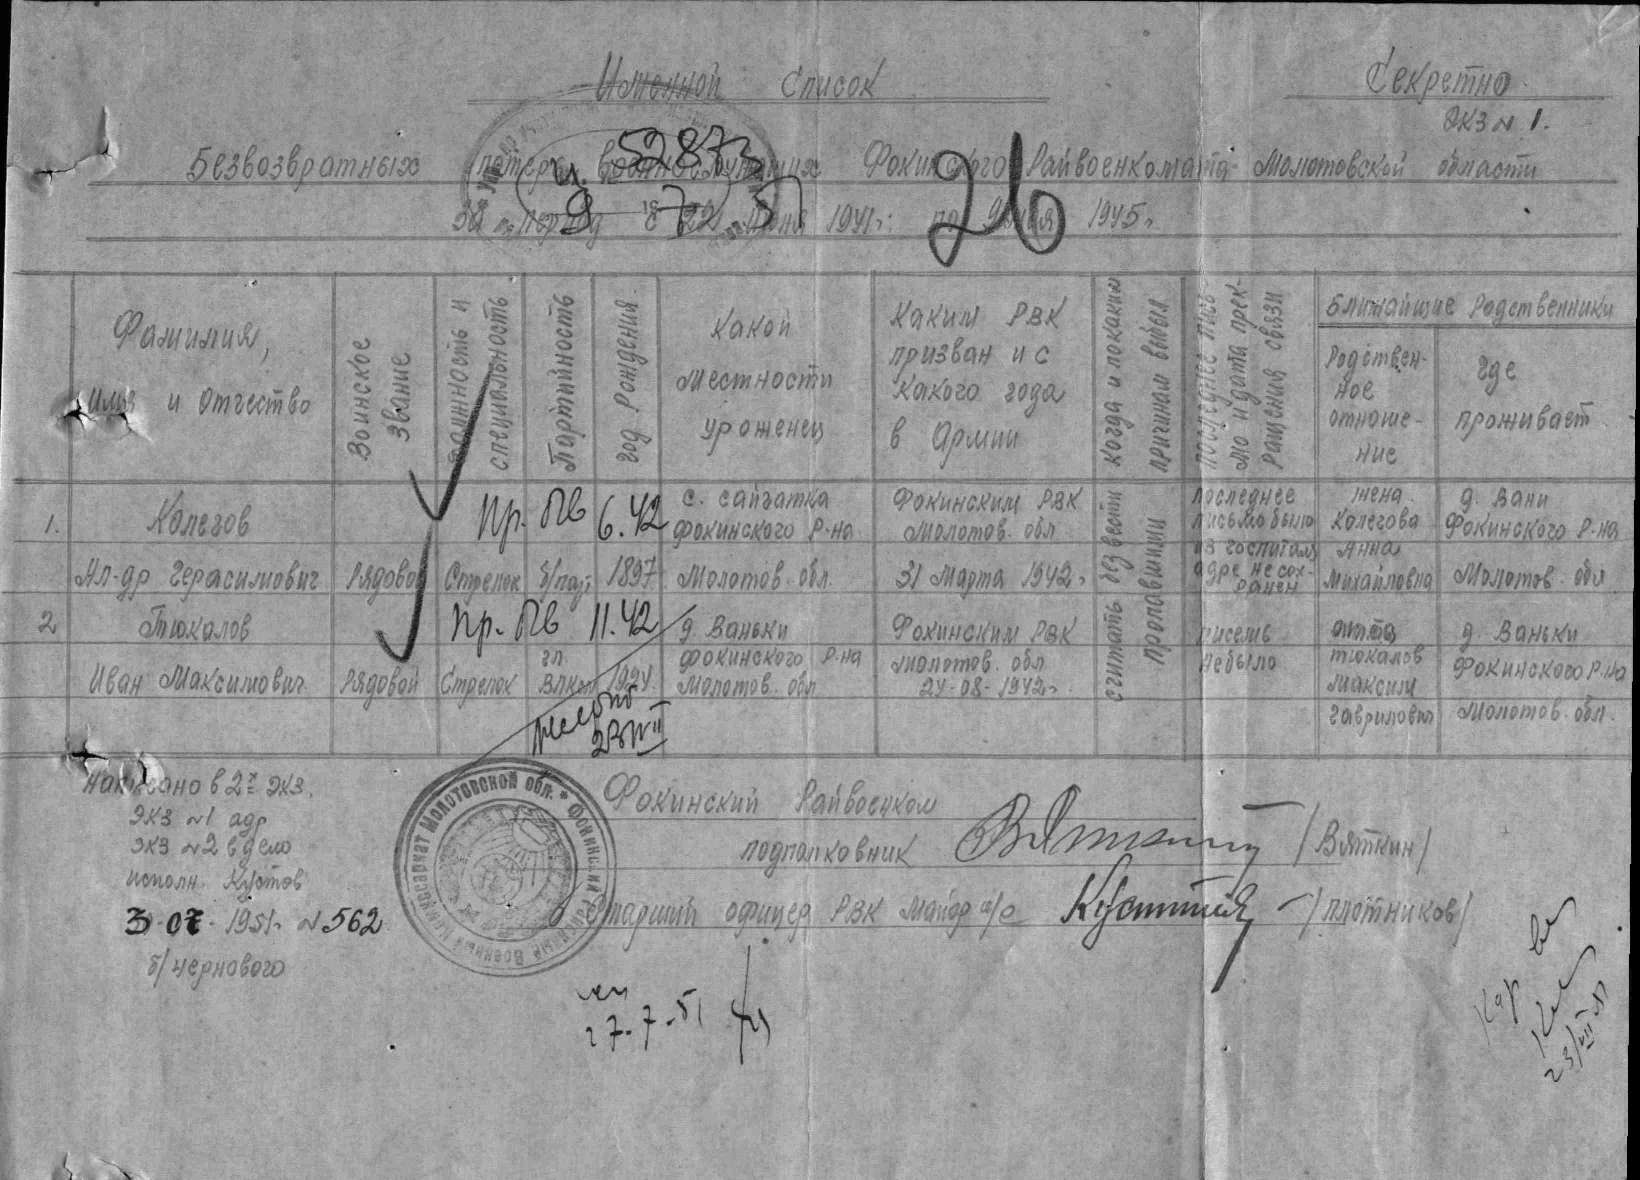 Именной Список
Секретно
Экз № 1.
52873
Безвозвратных потерь военнослужащих Фокинского Райвоенкомата Молотовской области
за период с 22 июня 1941г. по 9 мая 1945г.
26
Фамилия, Имя и Отчество
Воинское звание
Должность и специальность
Партийность
год рождения.
Какой местности уроженец
Каким РВК призван и с какого года в Армии
Когда и по каким причинам выбыл
Последнее письмо и дата прекращения связи
Ближайшие Родственники
Родствен-
ное
отноше-
ние
где
проживает
1.
Колегов
Ал-др Герасимович
Рядовой
Стрелок
б/пар.
1897
пр. пв 6.42
с. сайгатка
Фокинского Р-на
Молотов. обл.
Фокинским РВК
Молотов. обл
31 Марта 1942г.
считать без вести пропавшими
последнее
письмо было
из госпиталя
адре не сох-
ранен
жена
Колегова
Анна
Михайловна
д. Вани
Фокинского Р-на
Молотов. обл
2
Тюкалов
Иван Максимович
Рядовой
Стрелок
чл.
ВЛКСМ
1924
пр. пв 11.42
д Ваньки
Фокинского Р-на
Молотов. обл
Фокинским РВК
Молотов. обл
24-08-1942г.
писем
не было
Тюкалов
Максим
Гаврилович
д. Ваньки
Фокинского Р-на
Молотов. обл.
Написано в 2х экз.
Экз №1 адр
Экз №2 в дело
исполн. Кустов
3-07-1951г. №562
б/чернового
Фокинский Райвоенком
подполковник /Вяткин/
Старший офицер РВК Майор а/с /плотников/
Военный Комиссариат Молотовской обл. * Фокинский Районный
27-7-51
23/VII 51